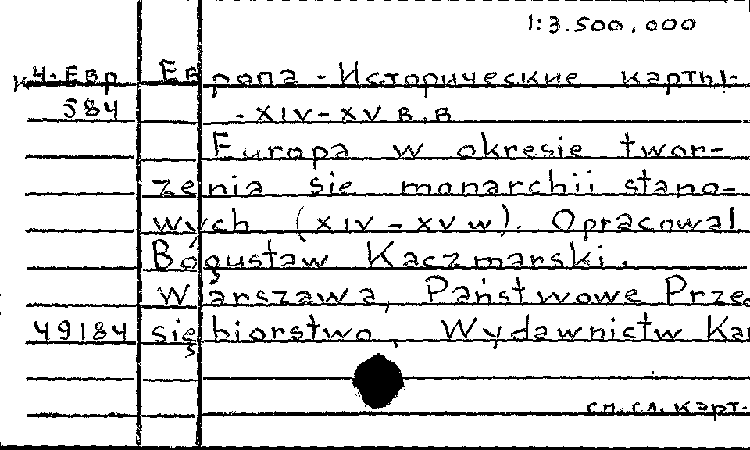 1:3.500,000
к4-Евр Европа - Исторические карты-
584 - XIV-XV в.в
Europa w okresie twor-
zenia sie monarchii stano-
wych (XIV-XV w). Opracowal
Bogustaw Kaczmarski.
Warszawa, Państwowe Prze
49184 się biorstwo, Wydawnictw Kar
сп. сл. карт.